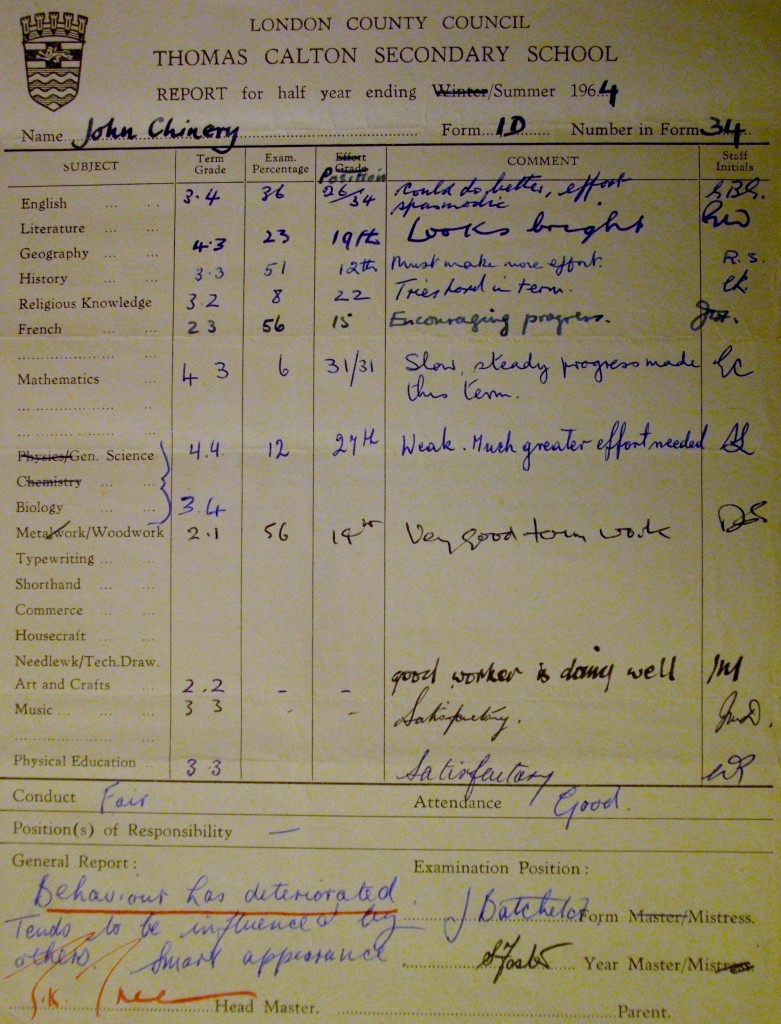 LONDON COUNTY COUNCIL
THOMAS CALTON SECONDARY SCHOOL
REPORT for half year ending Winter/Summer 1964
Name John Chinery Form 1D Number in Form 34
SUBJECT Term Grade Exam. Percentage Effort Grade Position COMMENT Staff Initials
English 3.4 36 26/34 Could do better, effort spasmodic G.B.G.
Literature
Geography 4.3 23 19th Looks bright
History 3.3 51 12th Must make more effort. R.S.
Religious Knowledge 3.2 8 22 Tries hard in term.
French 2 3 56 15 Encouraging progress.
Mathematics 4 3 6 31/31 Slow, steady progress made
this term.
Physics/Gen. Science 4.4 12 27th Weak. Much greater effort needed
Chemistry
Biology 3.4
Metalwork/Woodwork 2.1 56 Very good term work
Typewriting
Shorthand
Commerce
Housecraft
Needlewk/Tech.Draw.
Art and Crafts 2.2 - - good worker is doing well
Music 3 3 - - Satisfactory.
Physical Education 3 3 Satisfactory
Conduct Fair Attendance Good.
Position(s) of Responsibility —
General Report: Examination Position:
Behaviour has deteriorated.
Tends to be influenced by
others. Smart appearance
J Batchelor Form Master/Mistress.
S. Foster Year Master/Mistress.
Head Master. Parent.